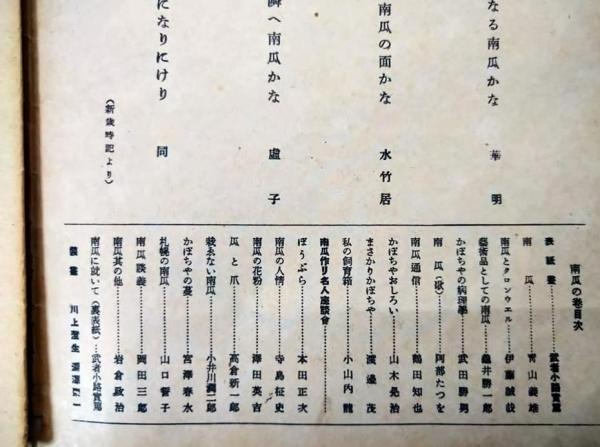 なる南瓜かな　華明
南瓜の面かな　水竹居
隣へ南瓜かな　虚子
になりにけり　同
（新歳時記より）
南瓜の巻目次
表紙畫…………武者小路實篤
南瓜…………青山義雄
南瓜とクロンウエル…………伊藤誠哉
藝術品としての南瓜…………龜井勝一郎
かぼちやの病理學…………武田勝男
南瓜（歌）…………阿部たつを
南瓜通信…………鶴田知也
かぼちやおしろい…………山木晃治
まさかりかぼちや…………渡邊茂
私の飼育箱…………小山内龍
南瓜作り名人座談會
ぼうぶら…………本田正次
南瓜の人情…………寺島征史
南瓜の花粉…………澤田英吉
瓜と爪…………高倉新一郎
栽ゑない南瓜…………小井川潤二郎
かぼちやの蔓…………宮澤春水
札幌の南瓜…………山口誓子
南瓜談義…………岡田三郎
南瓜其の他…………岩倉政治
南瓜に就いて（裏表紙）…武者小路實篤
裝畫…………川上澄生